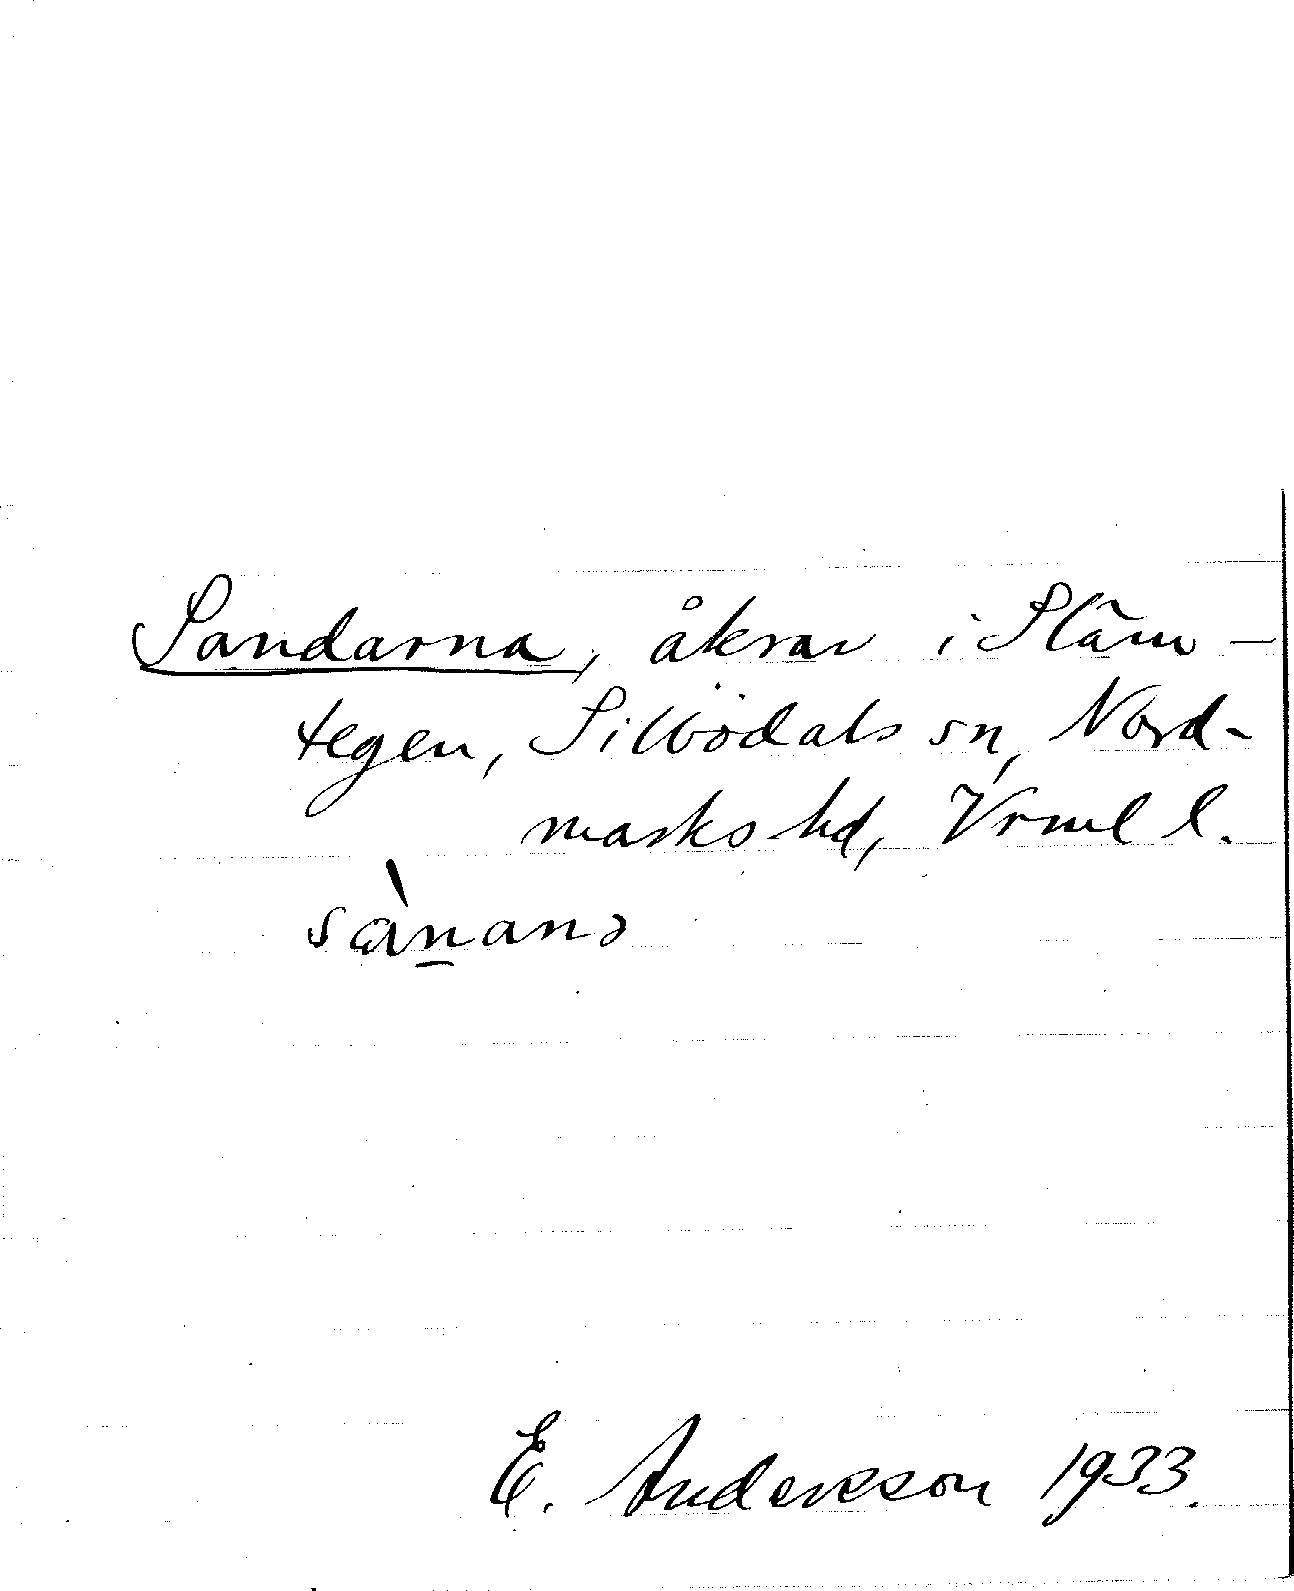 Sandarna, åkrar i Släm-
tegen, Silbodals sn, Nord-
marks hd, Vrml l.
sànanɔ
E. Andersson 1933.